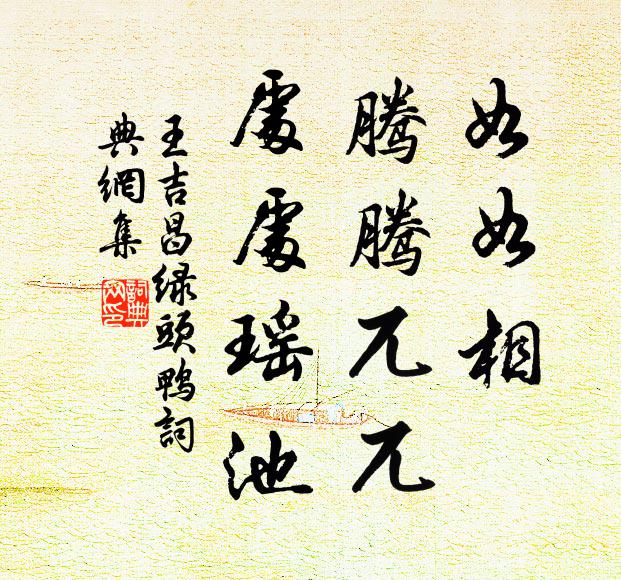 如如相
騰騰兀兀
處處瑤池
王吉昌绿頭鴨詞
典網集
詞典
网印